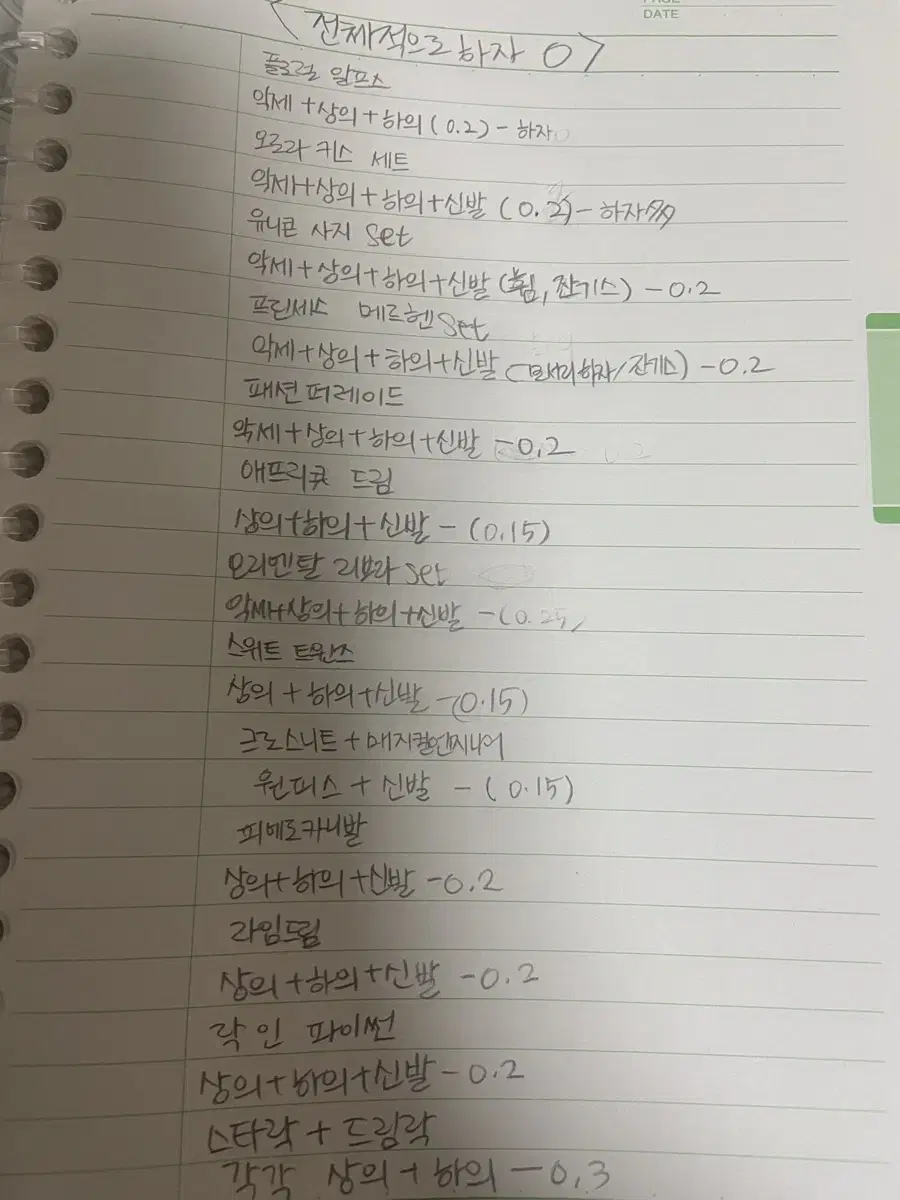 PAGE
DATE
< 전체적으로 하자 O >
플로럴 알프스
악세 + 상의 + 하의 (0.2) - 하자
오로라 키스 세트
악세+상의+하의+신발 (0.2) - 하자多
유니콘 사지 Set
악세+상의+하의+신발 (휨, 잔기스) - 0.2
프린세스 메르헨 Set
악세+상의+하의+신발 (모서리하자/잔기스) - 0.2
패션퍼레이드
악세+상의+하의+신발 - 0.2
애프리큐 드림
상의+하의+신발 - (0.15)
오리엔탈 리브라 set
악세+상의+하의+신발 - (0.25)
스위트 트윈스
상의 + 하의+신발 - (0.15)
크로스니트 + 매지컬엔지니어
원피스 + 신발 - (0.15)
피에로카니발
상의+하의+신발 - 0.2
라임드림
상의+하의+신발 - 0.2
락 인 파이썬
상의+하의+신발 - 0.2
스타락 + 드림락
각각 상의 + 하의 - 0.3